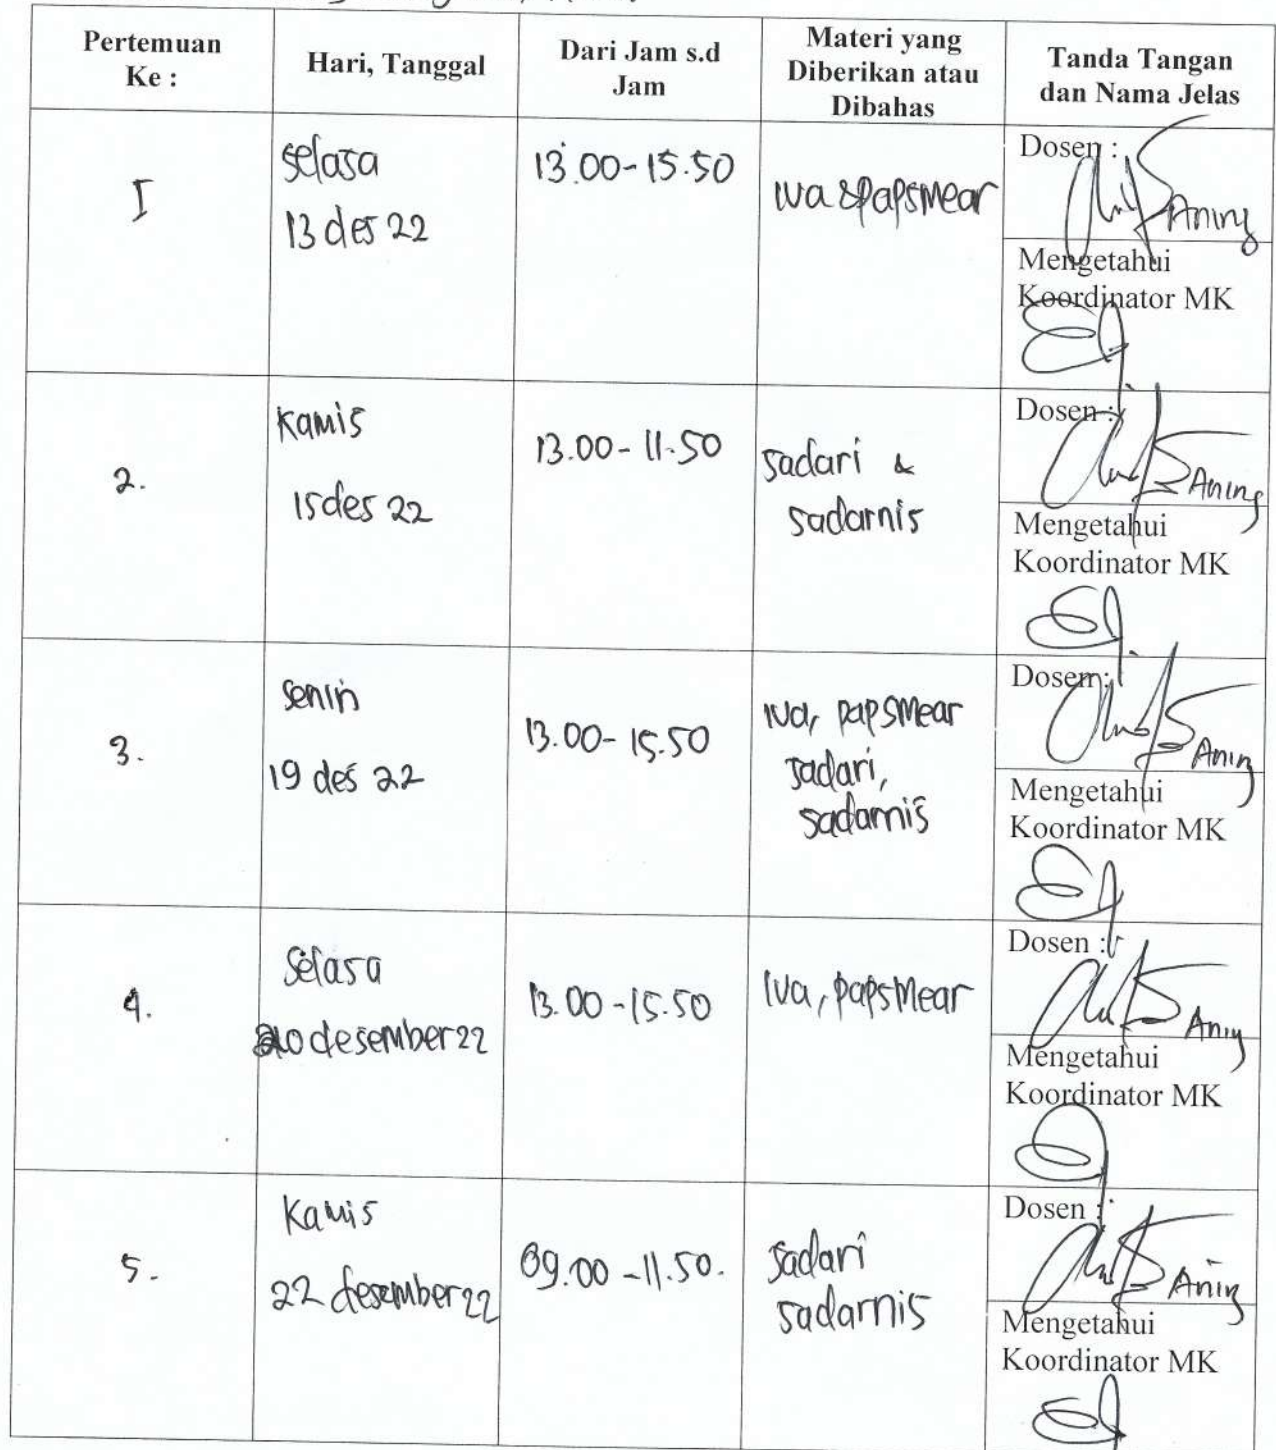 Pertemuan
Ke :
Hari, Tanggal
Dari Jam s.d
Jam
Materi yang
Diberikan atau
Dibahas
Tanda Tangan
dan Nama Jelas
I
selasa
13 des 22
13.00-15.50
iva & papsmear
Dosen :
Aning
Mengetahui
Koordinator MK
2.
Kamis
15 des 22
13.00-11.50
sadari &
sadarnis
Dosen :
Aning
Mengetahui
Koordinator MK
3.
senin
19 des 22
13.00-15.50
iva, papsmear
sadari,
sadarnis
Dosen :
Aning
Mengetahui
Koordinator MK
4.
selasa
20 desember 22
13.00-15.50
iva, papsmear
Dosen :
Aning
Mengetahui
Koordinator MK
5.
Kamis
22 desember 22
09.00-11.50.
sadari
sadarnis
Dosen :
Aning
Mengetahui
Koordinator MK